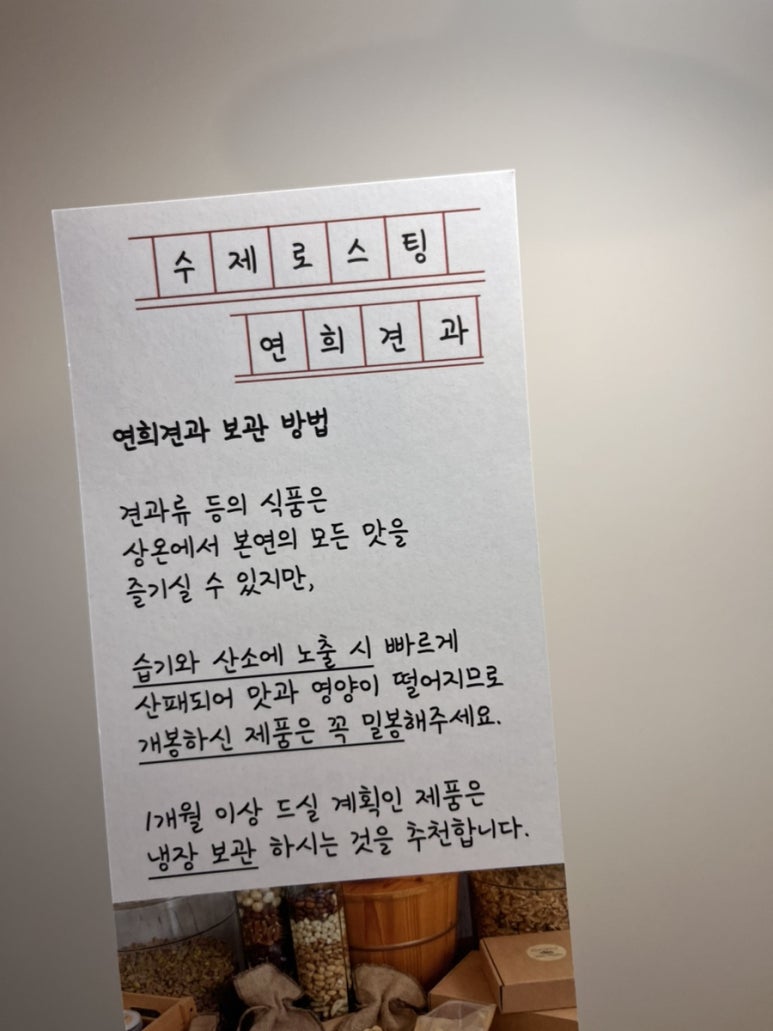 수제로스팅
연희견과
연희견과 보관 방법
견과류 등의 식품은
상온에서 본연의 모든 맛을
즐기실 수 있지만,
습기와 산소에 노출 시 빠르게
산패되어 맛과 영양이 떨어지므로
개봉하신 제품은 꼭 밀봉해주세요.
1개월 이상 드실 계획인 제품은
냉장 보관 하시는 것을 추천합니다.